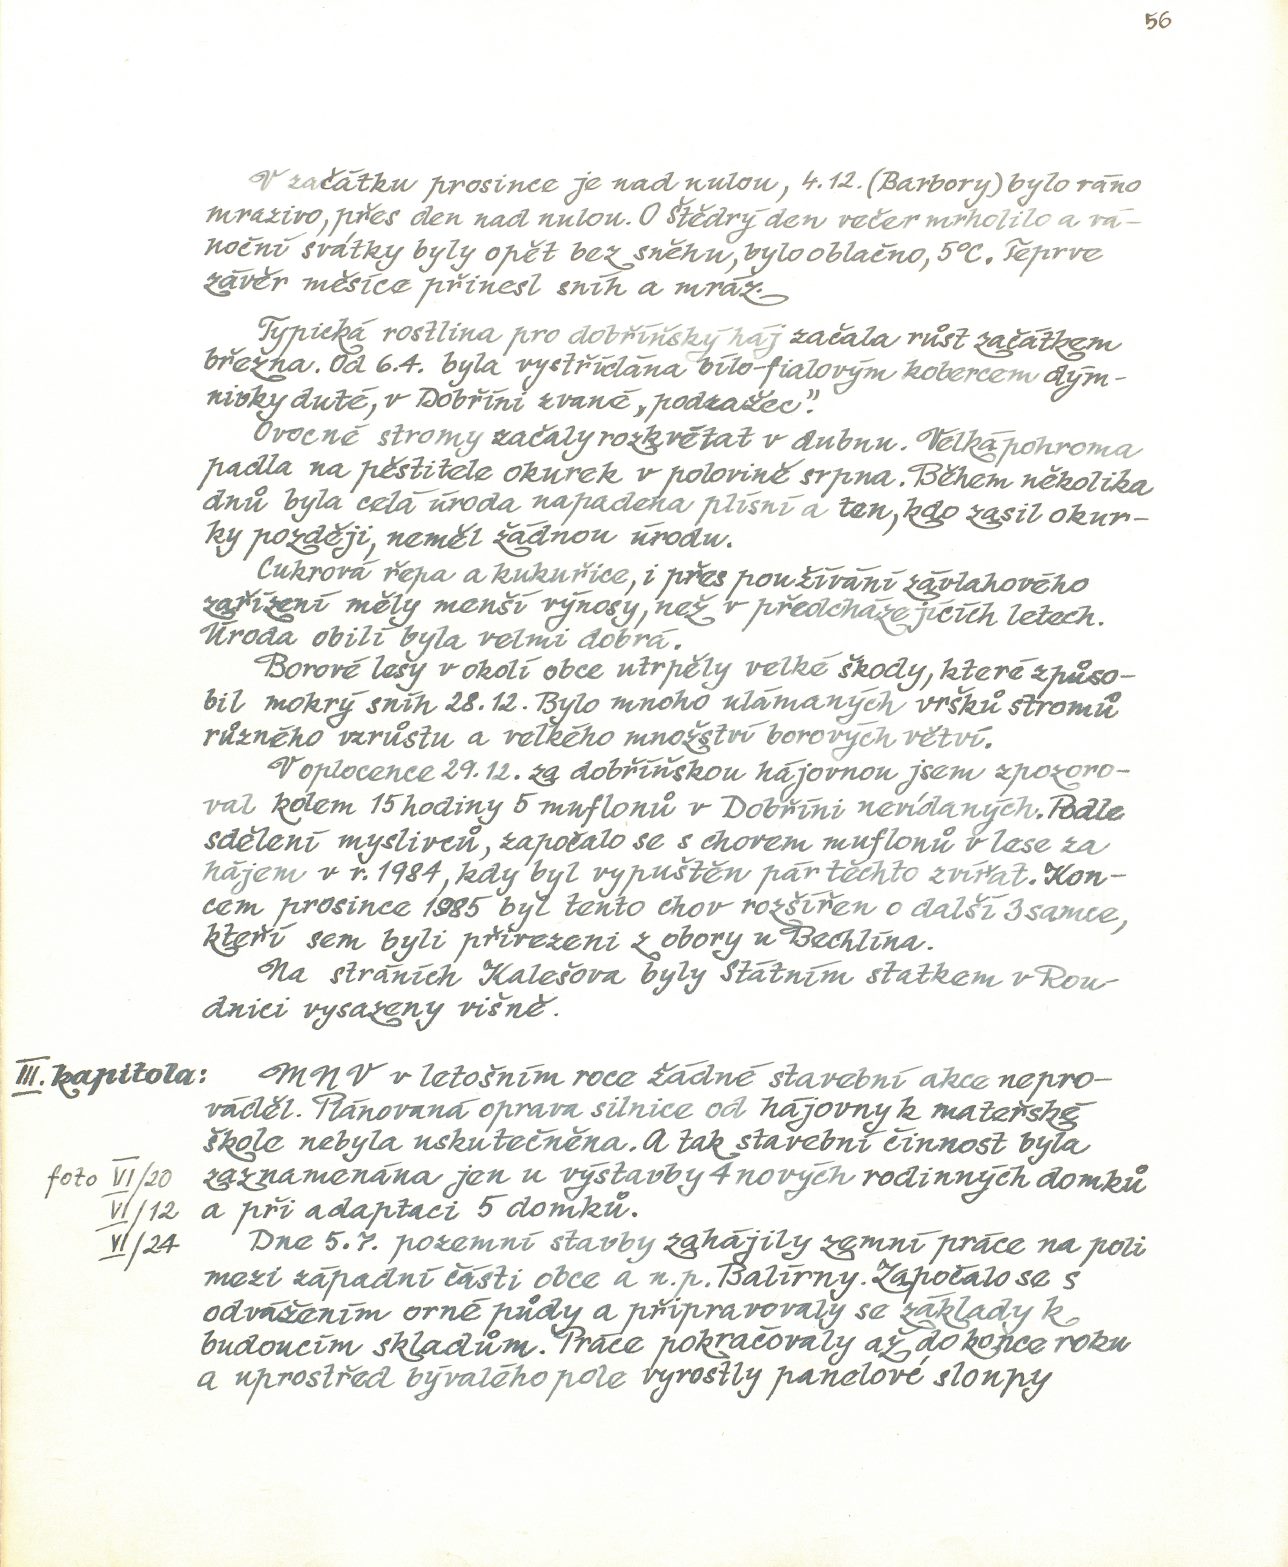 56
V začátku prosince je nad nulou, 4.12. (Barbory) bylo ráno
mrazivo, přes den nad nulou. O Štědrý den večer mrholilo a vá-
noční svátky byly opět bez sněhu, bylo oblačno, 5°C. Teprve
závěr měsíce přinesl sníh a mráz.
Typická rostlina pro dobříňský háj začala růst začátkem
března. Od 6.4. byla vystřídána bílo-fialovým kobercem dým-
nivky duté, v Dobříni zvané „podražec".
Ovocné stromy začaly rozkvétat v dubnu. Velká pohroma
padla na pěstitele okurek v polovině srpna. Během několika
dnů byla celá úroda napadena plísní a ten, kdo zasil okur-
ky později, neměl žádnou úrodu.
Cukrová řepa a kukuřice, i přes používání závlahového
zařízení měly menší výnosy, než v předcházejících letech.
Úroda obilí byla velmi dobrá.
Borové lesy v okolí obce utrpěly velké škody, které způso-
bil mokrý sníh 28.12. Bylo mnoho ulámaných vršků stromů
různého vzrůstu a velkého množství borových větví.
V oplocence 29.12. za dobříňskou hájovnou jsem zpozoro-
val kolem 15 hodiny 5 muflonů v Dobříni nevídaných. Podle
sdělení myslivců, započalo se s chovem muflonů v lese za
hájem v r. 1984, kdy byl vypuštěn pár těchto zvířat. Kon-
cem prosince 1985 byl tento chov rozšířen o další 3 samce,
kteří sem byli přivezeni z obory u Bechlína.
Na stráních Kalešova byly Státním statkem v Rou-
dnici vysazeny višně.
III. kapitola: MNV v letošním roce žádné stavební akce nepro-
váděl. Plánovaná oprava silnice od hájovny k mateřské
škole nebyla uskutečněna. A tak stavební činnost byla
foto VI/20 zaznamenána jen u výstavby 4 nových rodinných domků
VI/12 a při adaptaci 5 domků.
VI/24 Dne 5.7. pozemní stavby zahájily zemní práce na poli
mezi západní částí obce a n.p. Balírny. Započalo se s
odvážením orné půdy a připravovaly se základy k
budoucím skladům. Práce pokračovaly až do konce roku
a uprostřed bývalého pole vyrostly panelové sloupy